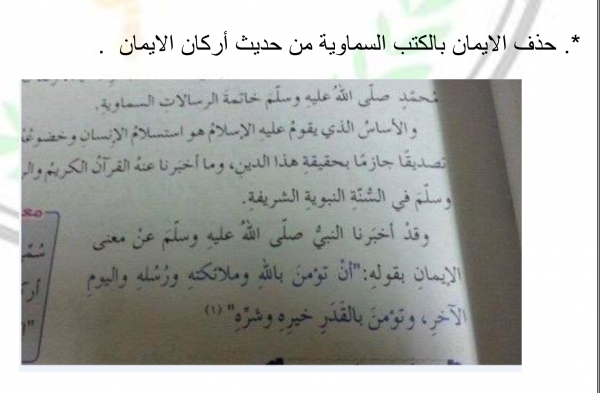 *. حذف الايمان بالكتب السماوية من حديث أركان الايمان .
مُحمّدٍ صلّى اللهُ عليه وسلّمَ خاتمةَ الرسالاتِ السماويةِ.
والأساسُ الذي يقومُ عليهِ الإسلامُ هو استسلامُ الإنسانِ وخضوعُهُ
تصديقًا جازمًا بحقيقةِ هذا الدينِ، وما أخبَرنا عنهُ القرآنُ الكريمُ
وسلّمَ في السُّنّةِ النبويةِ الشريفةِ.
وقدْ أخبَرنا النبيُّ صلّى اللهُ عليهِ وسلّمَ عنْ معنى
الإيمانِ بقولهِ: "أنْ تؤمنَ باللهِ وملائكتهِ ورُسُلهِ واليومِ
الآخرِ، وتؤمنَ بالقَدَرِ خيرِهِ وشرِّهِ" (١)